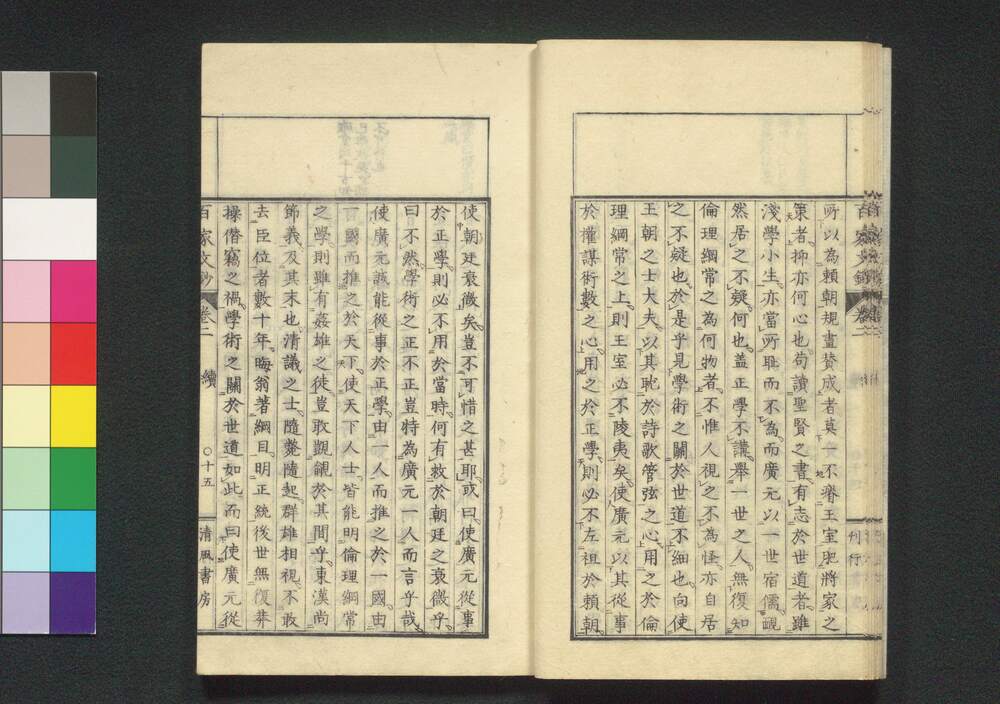 所以為賴朝規畫賛成者莫一不瘠王室肥將家之
策者抑亦何心也苟讀聖賢之書有志於世道者雖
淺學小生亦當所耻而不為而廣元以一世宿儒靦
然居之不疑何也蓋正學不講舉一世之人無復知
倫理綱常之為何物者不惟人視之不為怪亦自居
之不疑也於是乎見學術之關於世道不細也向使
王朝之士大夫以其耽於詩歌管弦之心用之於倫
理綱常之上則王室必不陵夷矣使廣元以其從事
於權謀術數之心用之於正學則必不左袒於賴朝
刊行
使朝廷衰微矣豈不可惜之甚耶或曰使廣元從事
於正學則必不用於當時何有救於朝廷之衰微乎
曰不然學術之正不正豈特為廣元一人而言乎哉
使廣元誠能從事於正學由一人而推之於一國由
一國而推之於天下使天下人士皆能明倫理綱常
之學則雖有姦雄之徒豈敢覬覦於其間乎東漢尚
節義及其末也清議之士隨斃隨起群雄相視不敢
去臣位者數十年晦翁著綱目明正統後世無復莽
操僭竊之禍學術之關於世道如此而曰使廣元從
百家文鈔 卷二 續 〇十五 清風書房